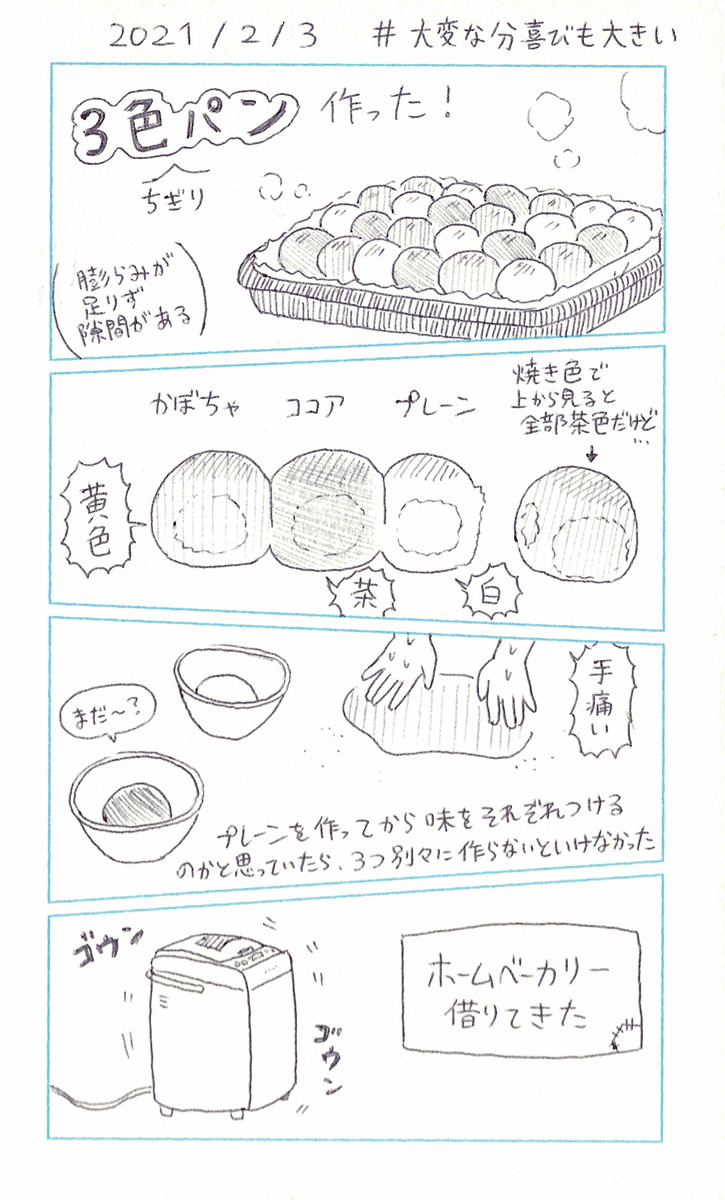 2021/2/3 #大変な分喜びも大きい
3色パン 作った!
ちぎり
(膨らみが
足りず
隙間がある)
かぼちゃ ココア プレーン
焼き色で
上から見ると
全部茶色だけど…
黄色
茶
白
まだ〜?
手痛い
プレーンを作ってから味をそれぞれつける
のかと思っていたら、3つ別々に作らないといけなかった
ゴウン
ゴウン
ホームベーカリー
借りてきた